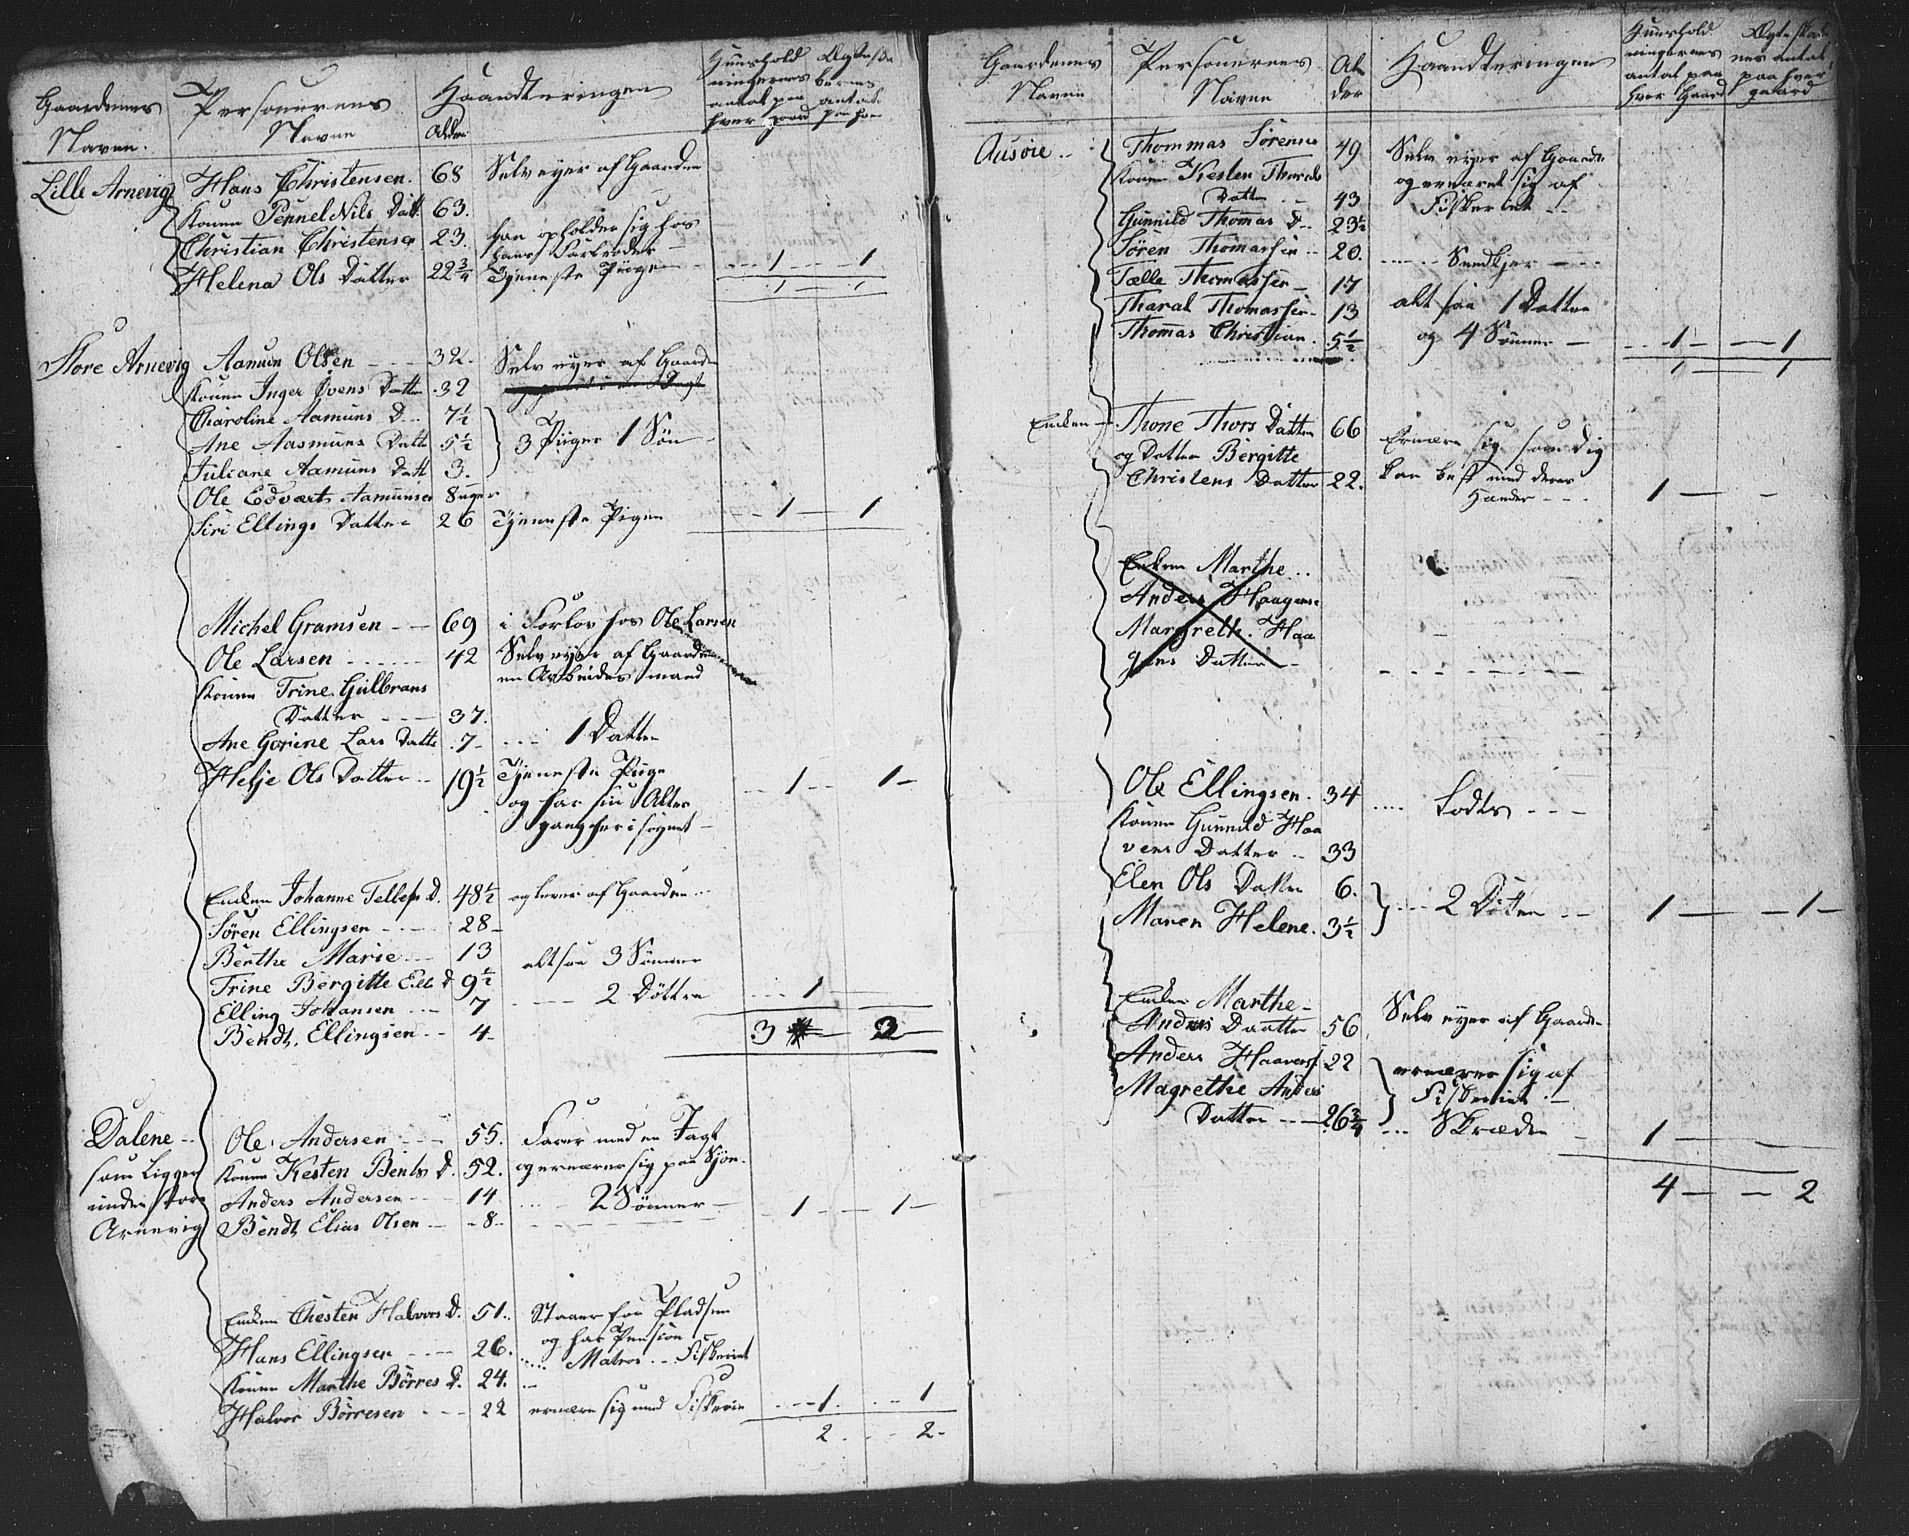 Gaardenes
Navne.
Personernes
Navne
Alder
Haandteringen
Huushold
ningernes
antal paa
hver gaard
antal
Lille Arnevig
Hans Christensen. 68 Selv eyer af Gaarden
Konen Pennel Nils Datt. 63.
Christian Christensen 23. han opholder sig hos
hans Forældre
Helena Ols Datter 22 3/4 Tjeneste Piige 1 1
1 1
Store Arnevig Aamun Olsen 32. Selv eyer af Gaarden
Konen Inger Evens Datter 32
Charoline Aamuns D. 7 1/2
Ane Aasmuns Datte 5 1/2 3 Piiger 1 Søn
Juliane Aamuns Datt 3.
Ole Edvart Aamunsen 8 uger
Siri Ellings Datter 26 Tjeneste Pigen 1 1
Michel Gramsen 69 i Forlov hos Ole Larsen
Ole Larsen 42 Selv eyer af Gaarden
en Arbeids mand
Konen Trine Gulbrans
Datter 37.
Ane Gorine Lars Datte 7 1 Datter
Helje Ols Datter 19 1/2 Tjeneste Piige
og har sin Alter
gang her i sognet 1 1
Enken Johanne Tellefs D. 48 1/2 og lever af Gaarden
Søren Ellingsen 28
Berthe Marie 13 altsaa 3 Sønner
Trine Bergitte Ell. D 9 1/2
2 Döttre 1
Elling Johansen 7
Bendt Ellingsen 4 3 2
Dalene
som Ligger
under Store
Arnevig
Ole Andersen 55. Farer med en Jagt
Konen Kesten Bents D. 52. og ernærer sig paa Sjøn.
Anders Andersen 14 2 Sønner 1 1
Bendt Elias Olsen 8
Enken Chesten Halvors D. 51. Staaer for Pladsen
og har Pension
Hans Ellingsen 26. Matros Fiskeriet
Konen Marthe Börres D. 24.
Halvor Börresen 22 ernære sig med Fiskerie 1 1
2 2
Gaardenes
Navne
Personernes
Navne
Al
der
Haandteringen
Huushold
ningernes
antal paa
hver Gaard
Ægteskab
nes antal
paa hver
gaard
Ausöie
Thommas Sörensen 49 Selv eyer af Gaarden
Konen Kesten Tharals
Datter 43 og ernæret sig af
Fiskeriet
Gunnild Thomas D. 23 1/2
Sören Thomassen 20. Snedkjer
Tælle Thomassen 17
Tharal Thomassen 13 alt saa 1 Datter
Thomas Christian 5 1/2 og 4 Sønner 1 1
1 1
Enken
Thone Thors Datter 66 Ernære sig som dig
og Datter Bergitte
Christens Datter 22. kan best med deres
Hænder 1
Enken Marthe
Anders Haagens
Margreth. Haa
gens Datter
Ole Ellingsen 34 Lods
Konen Gunnild Haa
vens Datter 33
Elen Ols Datter 6.
2 Döttre 1 1
Maren Helene. 3 1/2
Enken Marthe
Anders Daatter 56 Selv eyer af Gaarden
Anders Haavers 22 ernærer sig af
Fiskeriet
Magrethe Anders
Datter 26 3/4 Skræder 1
4 2